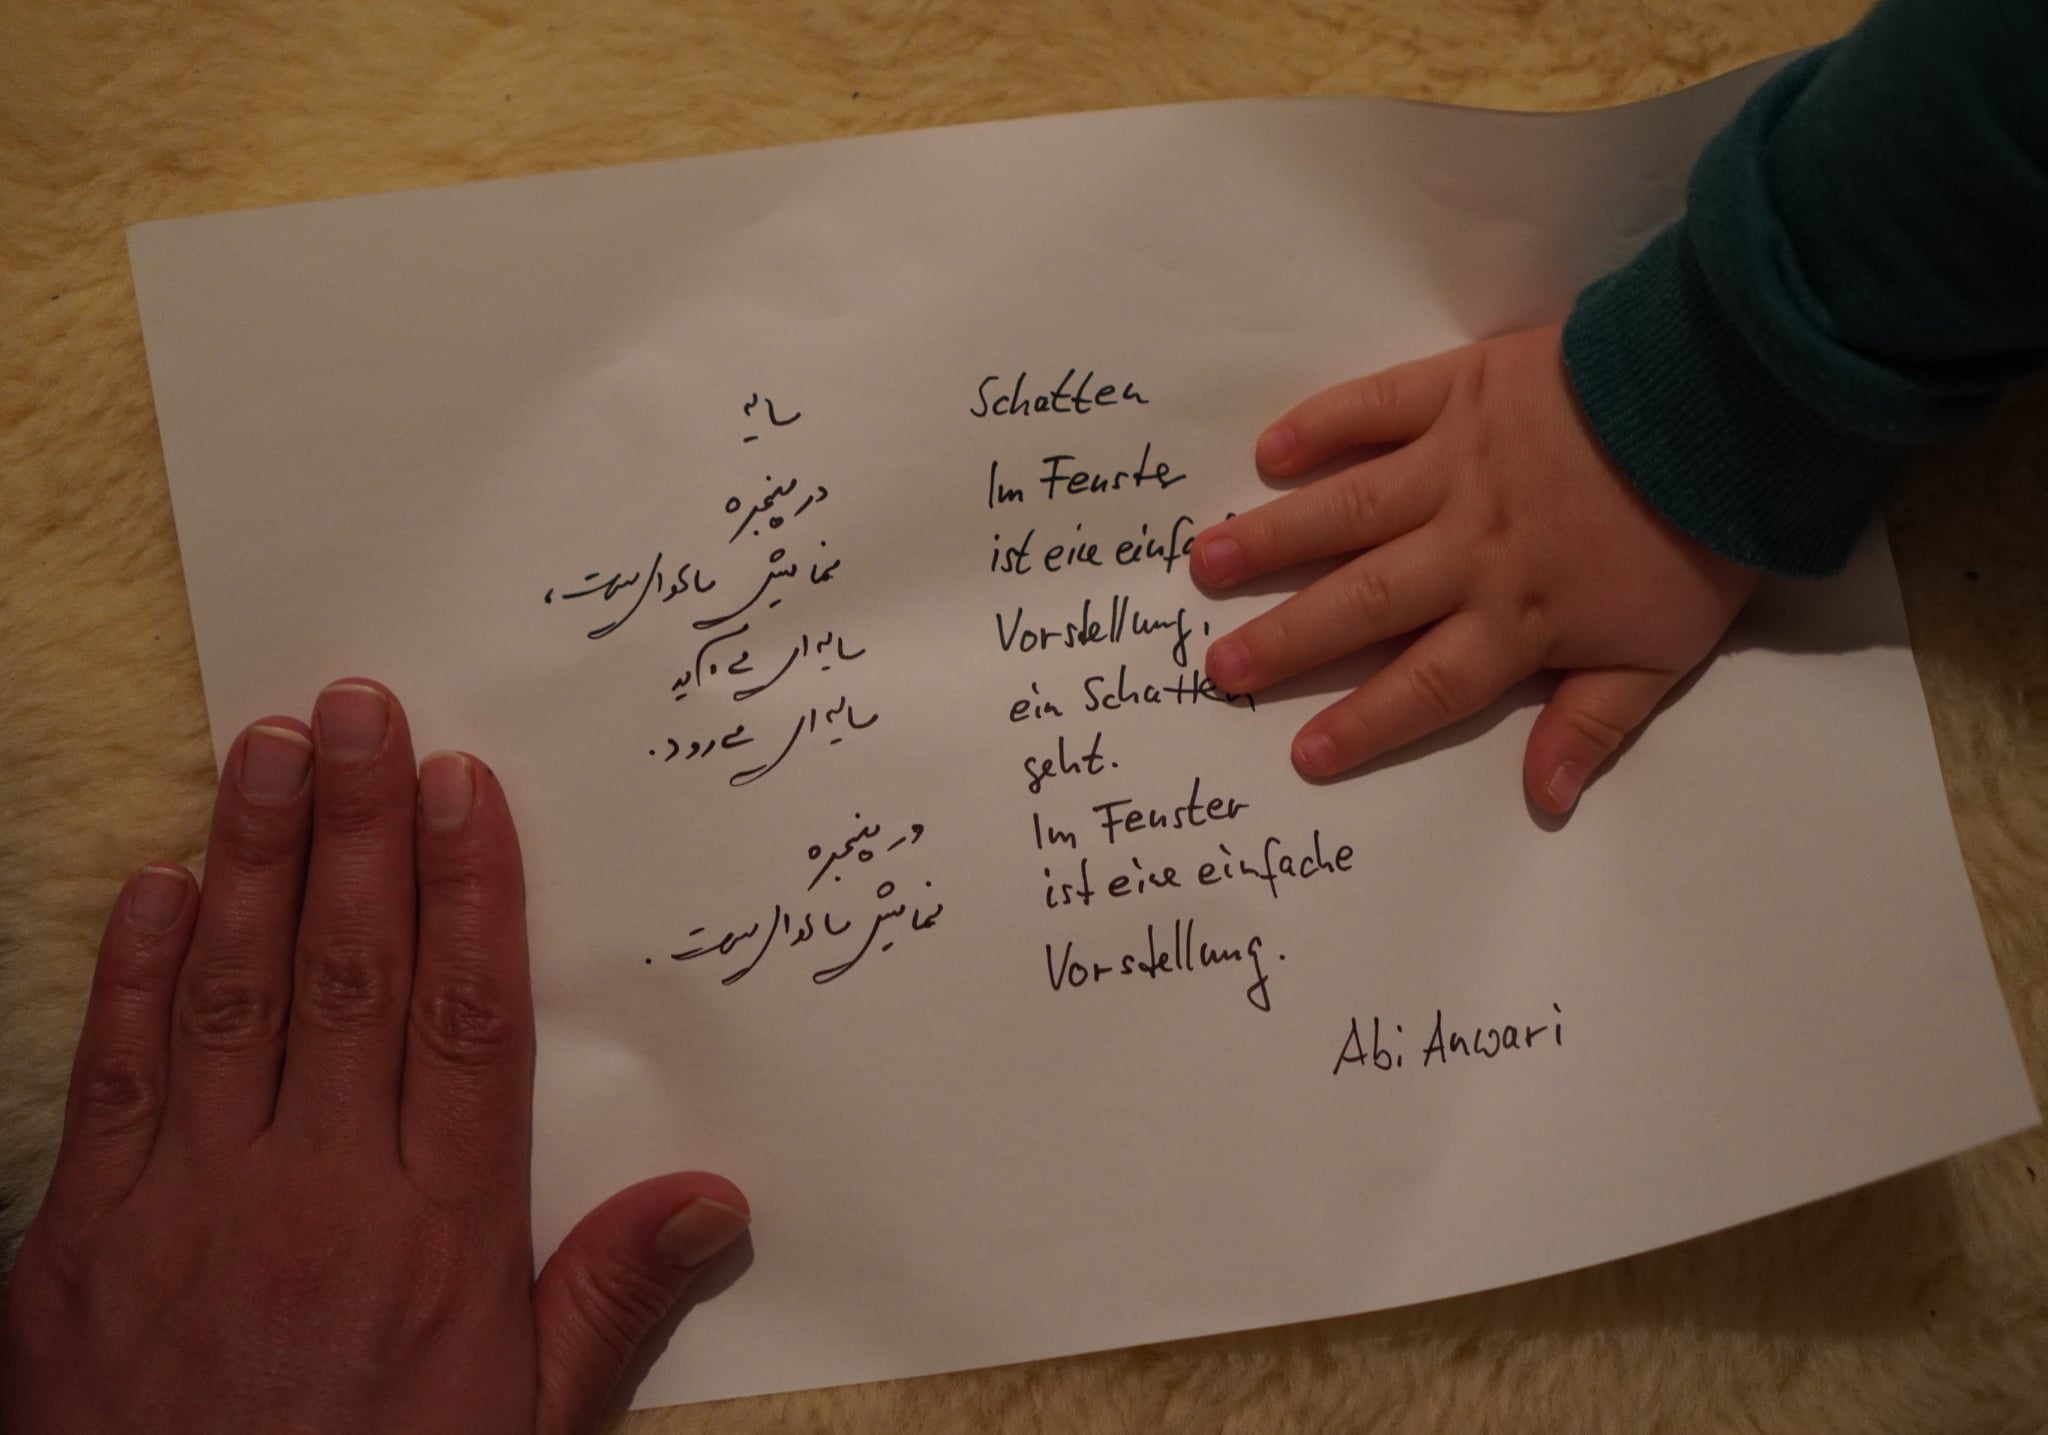 سایه
Schatten
در پنجره
نمایش ساده‌ای‌ست،
سایه‌ای می‌آید
سایه‌ای می‌رود.
در پنجره
نمایش ساده‌ای‌ست.
Im Fenster
ist eine
Vorstellung,
ein Schatten
geht.
Im Fenster
ist eine einfache
Vorstellung.
Abi Anwari